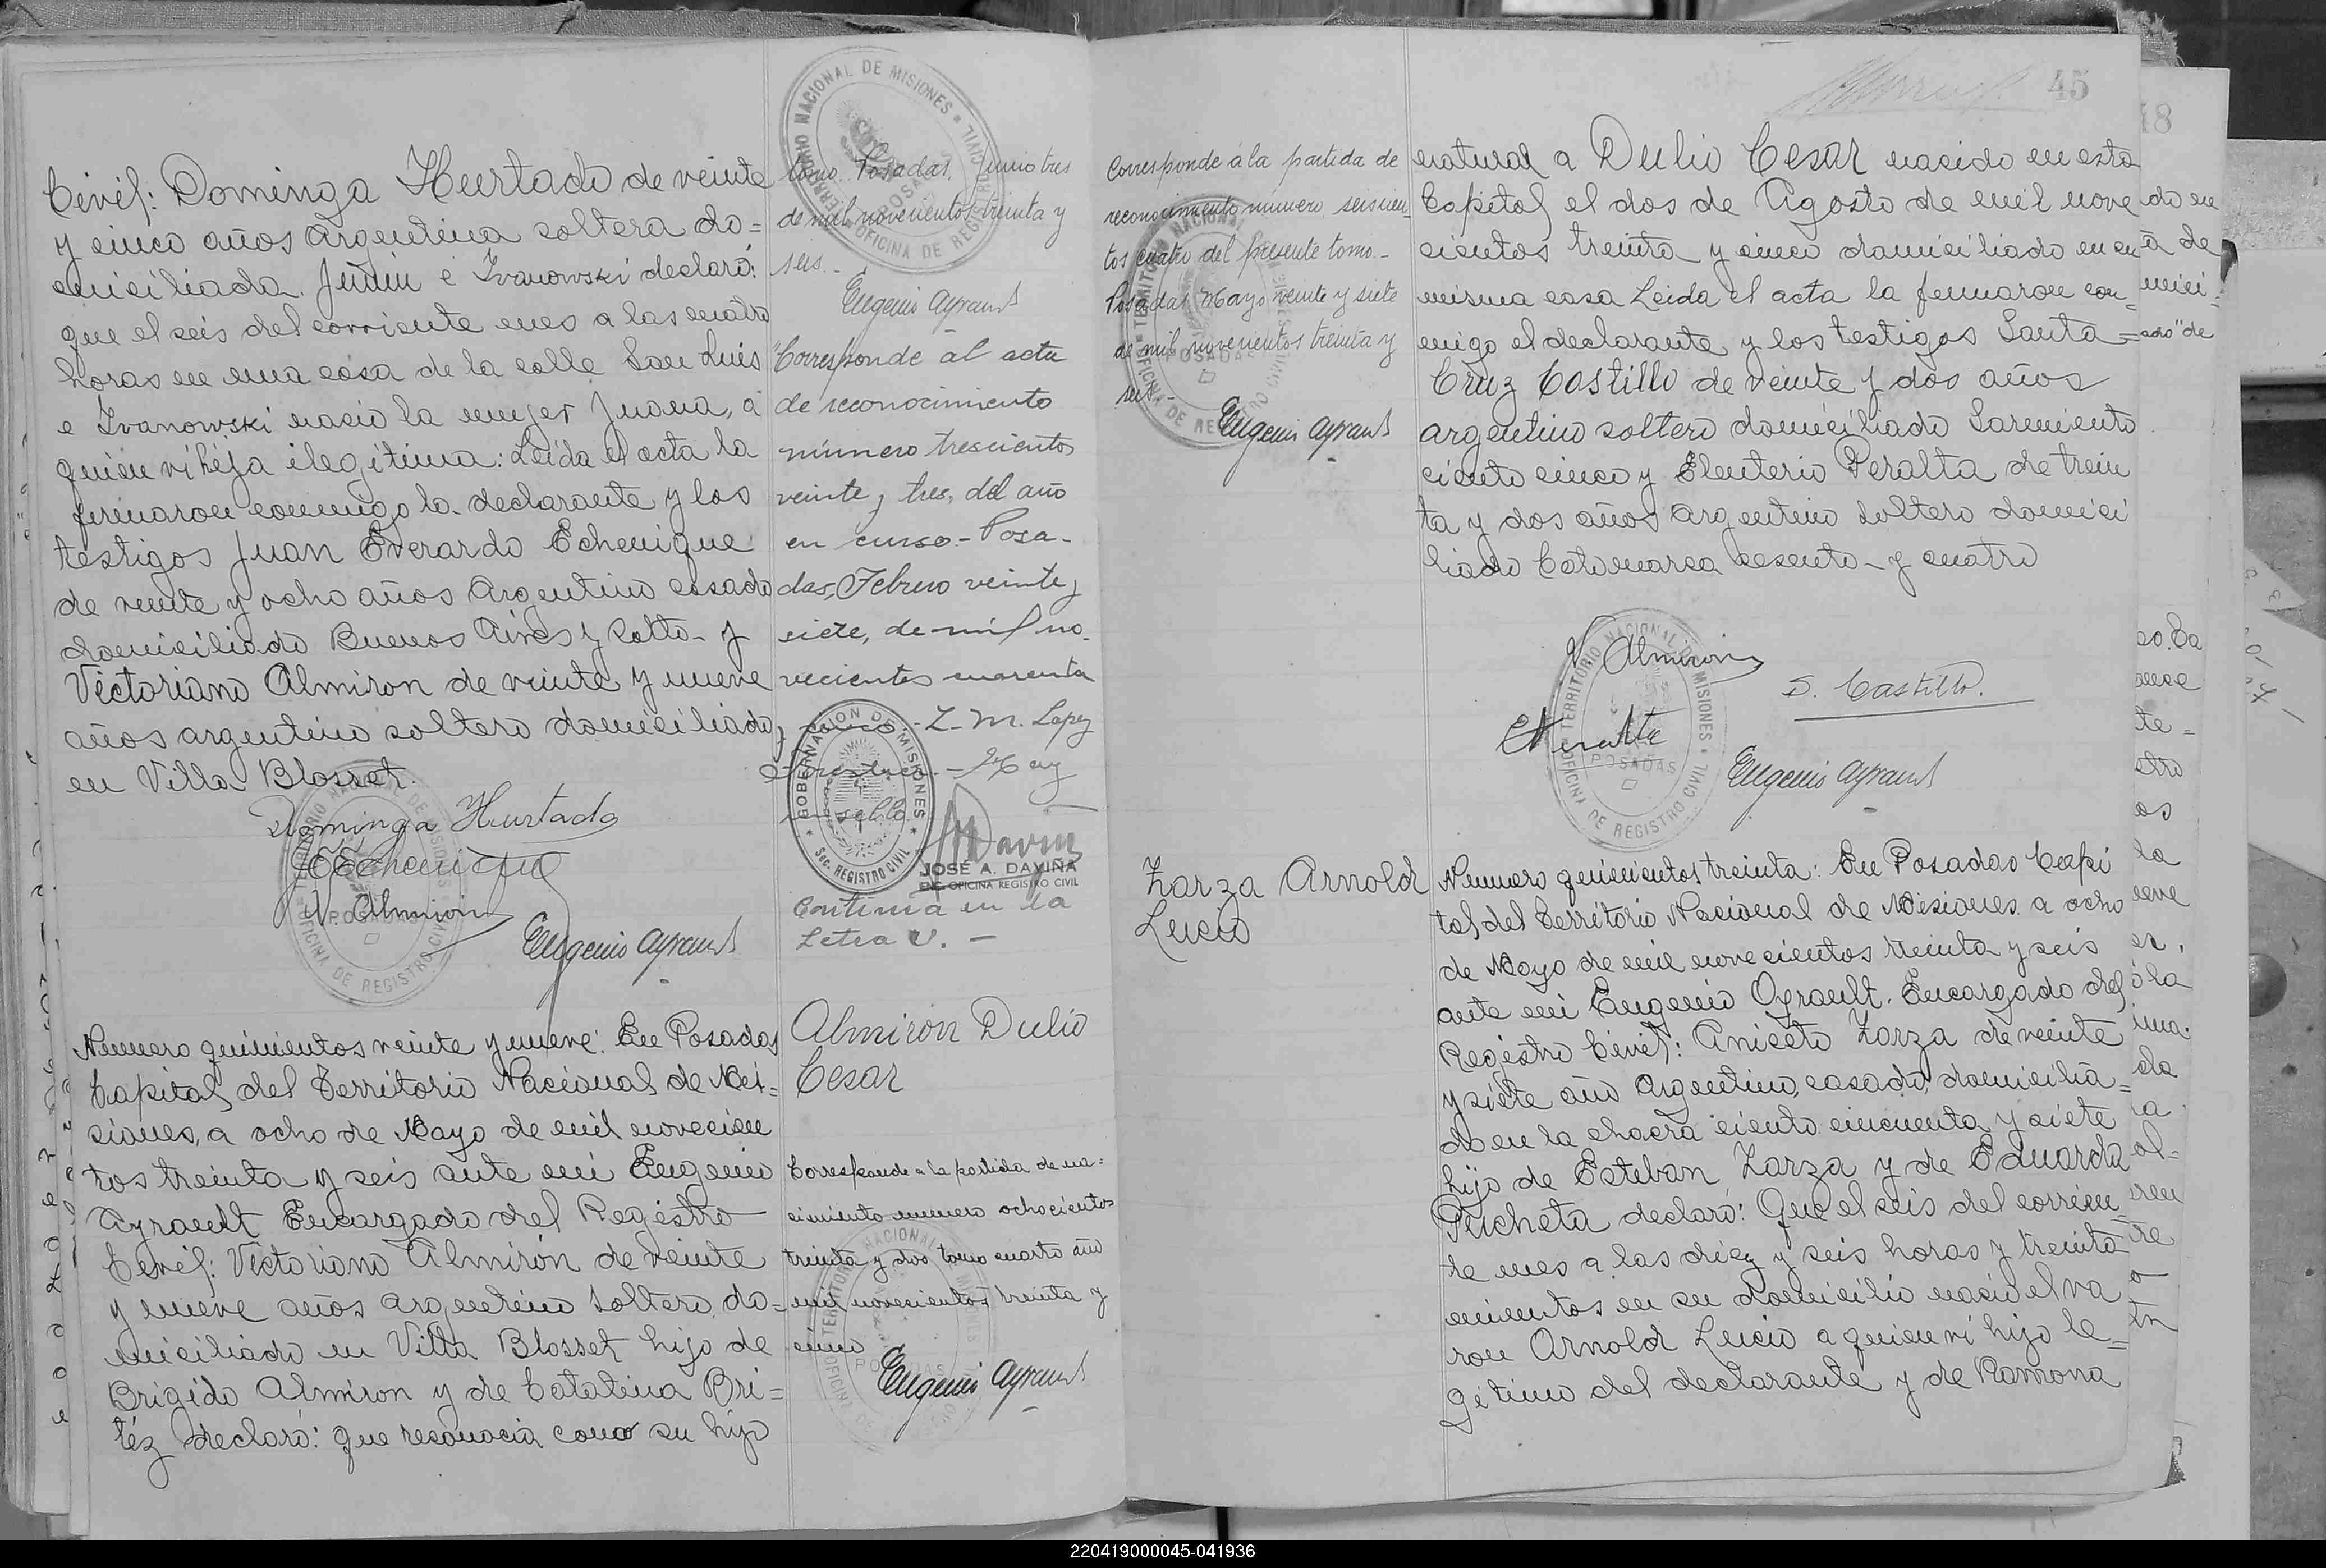 Civil: Dominga Hurtado de veinte
y cinco años Argentina soltera do=
miciliada. Junin e Ivanowski declaró:
que el seis del corriente mes a las cuatro
horas en una casa de la calle San Luis
e Ivanowski nació la mujer Juana, a
quien vi hija ilegitima: Leida el acta la
firmaron conmigo la declarante y los
testigos Juan Everardo Echenique
de veinte y ocho años Argentino casado
domiciliado Buenos Aires y Salta y
Victoriano Almiron de veinte y nueve
años argentino soltero domiciliado
en Villa Blosset.
Dominga Hurtado
JEEchenique
V. Almiron
Eugenio Ayrault
Numero quinientos veinte y nueve: En Posadas
Capital del Territorio Nacional de Mi=
siones, a ocho de Mayo de mil novecien
tos treinta y seis ante mi Eugenio
Ayrault Encargado del Registro
Civil: Victoriano Almirón de veinte
y nueve años argentino soltero, do=
miciliado en Villa Blosset hijo de
Brigido Almiron y de Catalina Bri=
téz declaró: que reconocia como su hijo
TERRITORIO NACIONAL DE MISIONES
OFICINA DE REGISTRO CIVIL
POSADAS
tomo. Posadas, Junio tres
de mil novecientos treinta y
seis.-
Eugenio Ayrault
"Corresponde al acta
de reconocimiento
número trescientos
veinte y tres, del año
en curso.- Posa-
das, Febrero veinte y
siete, de mil no-
vecientos cuarenta
y cinco - Z. M. Lopez
- Hay
un sello
GOBERNACION DE MISIONES
Sec. REGISTRO CIVIL
JOSÉ A. DAVIÑA
ENC. OFICINA REGISTRO CIVIL
Continua en la
Letra V. -
Almiron Dulio
Cesar
Corresponde a la partida de na=
cimiento numero ochocientos
treinta y dos tomo cuarto año
mil novecientos treinta y
cinco
Eugenio Ayrault
Corresponde á la partida de
reconocimiento numero seiscien_
tos cuatro del presente tomo.-
Posadas Mayo veinte y siete
de mil novecientos treinta y
seis.-
Eugenio Ayrault
Zarza Arnoldo
Lucio
45
natural a Dulio Cesar nacido en esta
Capital el dos de Agosto de mil nove
cientos treinta y cinco domiciliado en su
misma casa Leida el acta la firmaron con_
migo el declarante y los testigos Santa=
Cruz Castillo de veinte y dos años
argentino soltero domiciliado Sarmiento
ciento cinco y Eleuterio Peralta de trein
ta y dos años Argentino soltero domici
liado Catamarca sesenta y cuatro
V. Almiron
S. Castillo.
E Peralta
Eugenio Ayrault
Numero quinientos treinta: En Posadas Capi
tal del Territorio Nacional de Misiones a ocho
de Mayo de mil novecientos treinta y seis
ante mi Eugenio Ayrault. Encargado del
Registro Civil: Aniceto Zarza de veinte
y siete año Argentino, casado, domicilia=
do en la chacra ciento cincuenta y siete
hijo de Esteban Zarza y de Eduarda
Pucheta declaró: Que el seis del corrien_
te mes a las diez y seis horas y treinta
minutos en su domicilio nació el va
ron Arnoldo Lucio a quien vi hijo le=
gitimo del declarante y de Ramona
48
220419000045-041936